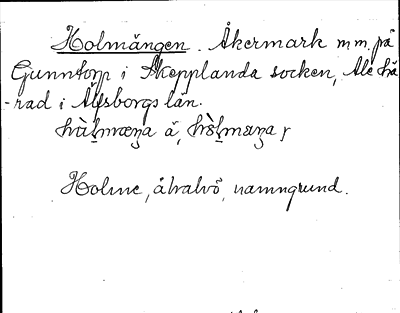 Holmängen. Åkermark m m. på
Gunntorp i Skepplanda socken, Ale hä
-rad i Älfsborgs län.
Holme, åhalvö, namngrund.